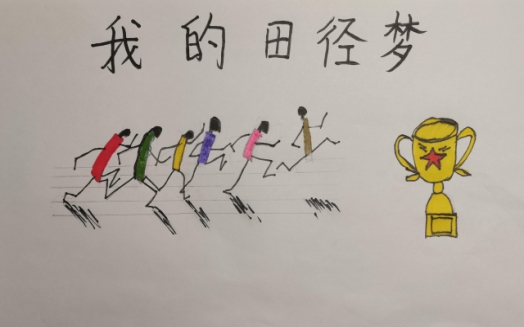 我的田径梦